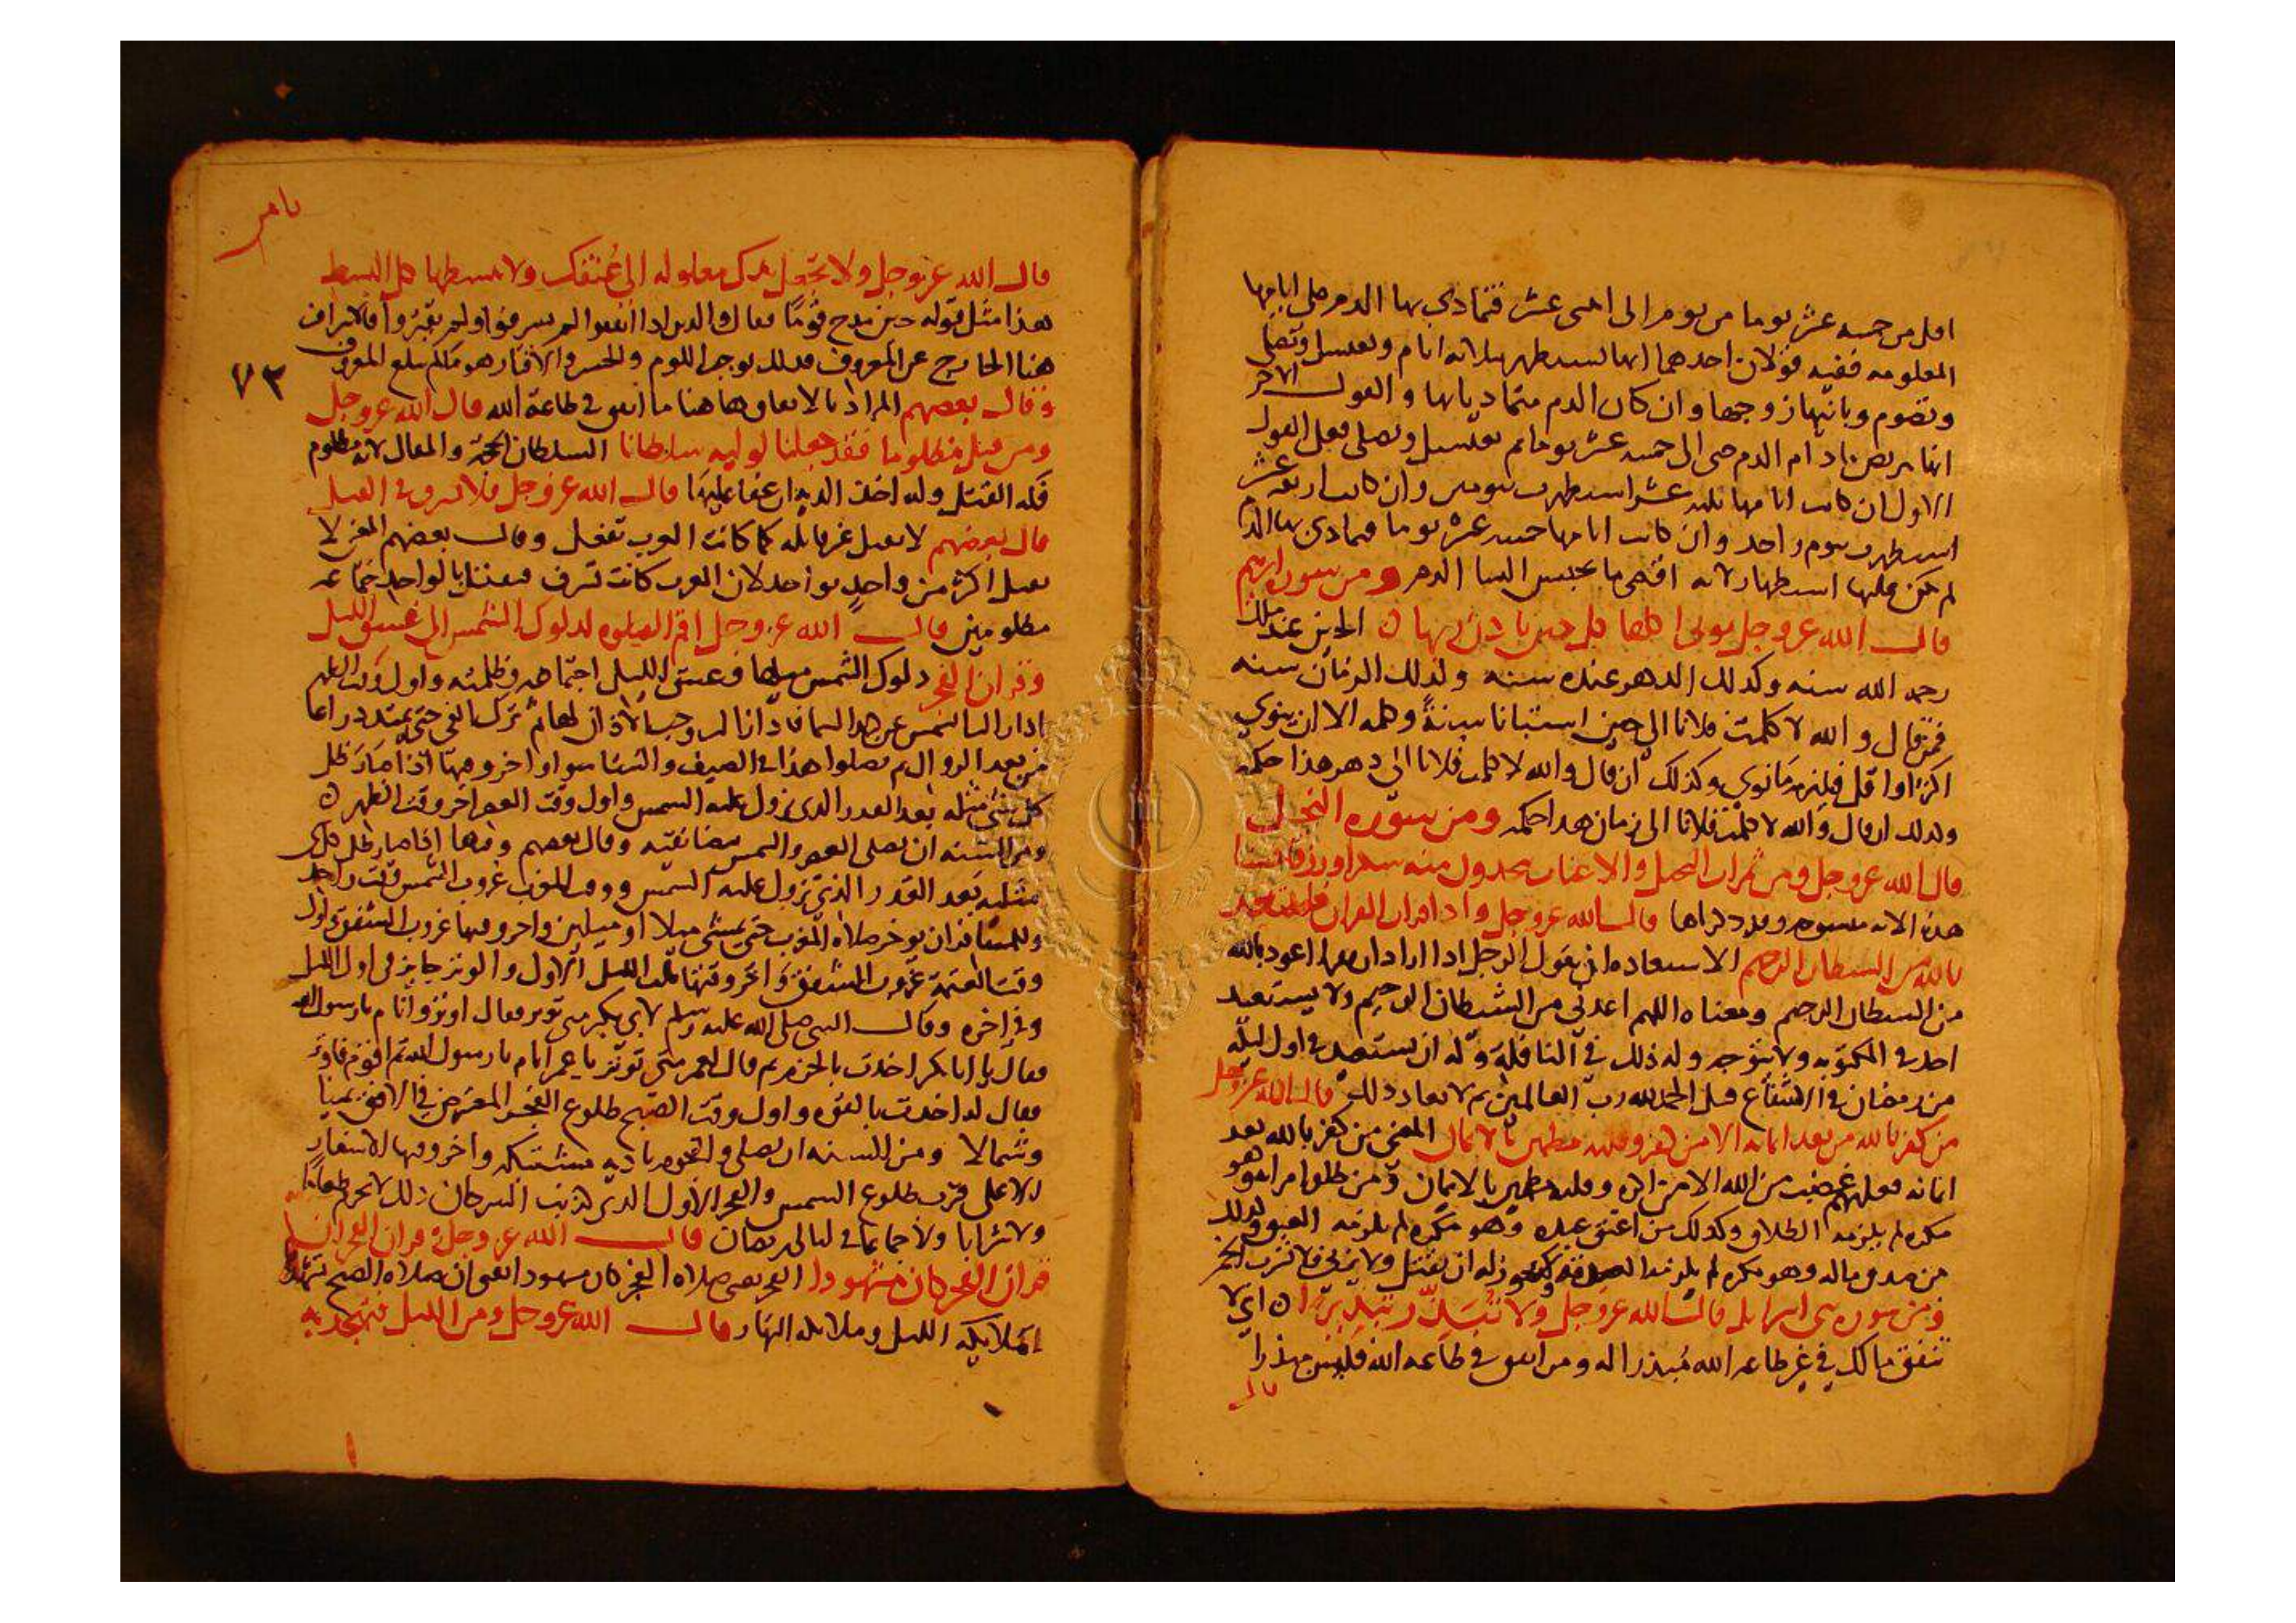 اقل من خمسه عشر يوما من يوم الى اثنى عشر فتمادى بها الدم على ايامها
المعلومه ففيه قولان احدهما انها تستطهر بثلاثه ايام وتغتسل وتصلي
وتصوم وياتيها زوجها وان كان الدم متماديا بها والقول الاخر
انها تربص ما دام الدم حتى الى خمسه عشر يوما ثم تغتسل وتصلي فعلى القول
الاول ان كانت ايامها ثلثه عشر استطهرت بيومين وان كانت اربعه عشر
استطهرت بيوم واحد وان كانت ايامها خمسه عشر يوما فتمادى بها الدم
لم يكن عليها استطهار لانه اقصى ما تحبس النسا الدم ومن سوره ابرهيم
قال الله عز وجل توتي اكلها كل حين باذن ربها الحين عند ملك
رحمه الله سنه وكذلك الدهر عنده سنه وكذلك الزمان سنه
فمن قال والله لا كلمت فلانا الى حين استانا به سنة وكلمه الا ان ينوي
اكثر او اقل فيلزمه ما نوى وكذلك ان قال والله لا كلمت فلانا الى دهر هذا حكمه
وكذلك ان قال والله لا كلمت فلانا الى زمان هذا حكمه ومن سوره النحل
قال الله عز وجل ومن ثمرات النخيل والاعناب تتخذون منه سكرا ورزقا حسنا
هذه الايه منسوخه وقد ذكرناها قال الله عز وجل واذا قرات القران فاستعذ
بالله من الشيطان الرجيم الاستعاذه ان يقول الرجل اذا اراد ان يقرا اعوذ بالله
من الشيطان الرجيم ومعناه اللهم اعذني من الشيطان الرجيم ولا يستعيذ
احد في المكتوبه ولا يتوجه وله ذلك في النافلة وله ان يستعيذ في اول ليله
من رمضان في الاشفاع قبل الحمد لله رب العالمين ثم لا يعاد ذلك قال الله عز وجل
من كفر بالله من بعد ايمانه الا من اكره وقلبه مطمئن بالايمان المعنى من كفر بالله بعد
ايمانه فعليهم غضب من الله الا من اكره وقلبه مطمئن بالايمان ومن طلق امراته وهو
مكره لم يلزمه الطلاق وكذلك من اعتق عبده وهو مكره لم يلزمه العتق وكذلك
من صدق ماله وهو مكره لم يلزمه الصدقه ولا يجوز له ان يقتل ولا يزني ولا يشرب الخمر
ومن سوره بني اسرايل قال الله عز وجل ولا تبذر تبذيرا اي لا
تنفق مالك في غير طاعه الله مبذرا له ومن انفق في طاعه الله فليس مبذرا
قال
قال الله عز وجل ولا تجعل يدك مغلوله الى عنقك ولا تبسطها كل البسط
هذا مثل قوله حين مدح قوما فقال والذين اذا انفقوا لم يسرفوا ولم يقتروا فالاسراف
هنا الخارج عن المعروف فذلك يوجب اللوم والحسره والاقتار هو ما لم يبلغ المعروف
٧٣
وقال بعضهم المراد بالانفاق هاهنا ما انفق في طاعة الله قال الله عز وجل
ومن قتل مظلوما فقد جعلنا لوليه سلطانا السلطان الحجة والمقال لانه مظلوم
فله القتل وله اخذ الديه ان عفا عليها قال الله عز وجل فلا يسرف في القتل
قال بعضهم لا يقتل غير قاتله كما كانت العرب تفعل وقال بعضهم المعنى لا
يقتل اكثر من واحد بواحد لان العرب كانت تسرف فتقتل بالواحد جماعه
مظلومين قال الله عز وجل اقم الصلوه لدلوك الشمس الى غسق الليل
وقران الفجر دلوك الشمس ميلها وغسق الليل اجتماعه وظلمته واول وقت الظهر
اذا زالت الشمس عن كبد السما فاذا زالت وجب الاذان لها ثم يترك الفي حتى يمتد ذراعا
من بعد الزوال ثم يصلوا هذا في الصيف والشتا سوا واخر وقتها اذا صار ظل
كل شي مثله بعد القدر الذي تزول عليه الشمس واول وقت العصر اخر وقت الظهر
ومن السنه ان يصلي العصر والشمس بيضا نقيه وقال بعضهم وقتها اذا صار ظل كل شي
مثليه بعد القدر الذي تزول عليه الشمس ووقت المغرب غروب الشمس وقت واحد
وللمسافر ان يوخر صلاه المغرب حتى يمشي ميلا او ميلين واخر وقتها غروب الشفق واول
وقت العتمة غروب الشفق واخر وقتها ثلث الليل الاول والوتر جايز في اول الليل
وفي اخره وقال النبي صلى الله عليه وسلم لابي بكر متى توتر فقال اوتر وانام يا رسول الله
فقال يا ابا بكر اخذت بالحزم ثم قال لعمر متى توتر يا عمر انام يا رسول الله ثم اقوم فاوتر
فقال له اخذت بالقوه واول وقت الصبح طلوع الفجر المعترض في الافق يمينا
وشمالا ومن السنه ان يصلي والنجوم باديه مشتبكه واخر وقتها الاسفار
الاعلى قرب طلوع الشمس والفجر الاول الذي كذنب السرحان ذلك لا يحرم طعاما
ولا شرابا ولا جماعا في ليالي رمضان قال الله عز وجل وقران الفجر ان
قران الفجر كان مشهودا الفجر يعني صلاه الفجر كان مشهودا يعني ان صلاه الصبح تشهدها
الملايكه الليل وملايكه النهار قال الله عز وجل ومن الليل فتهجد به